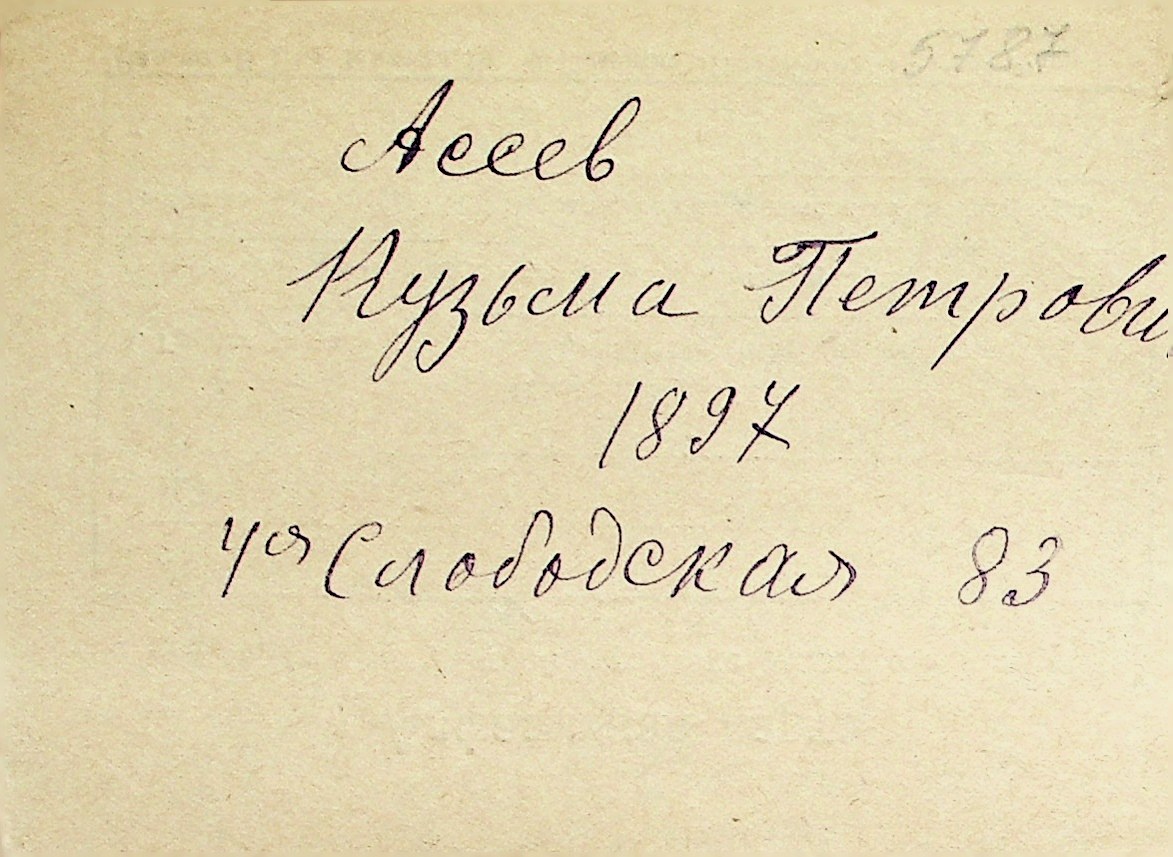 5787
Асеев
Кузьма Петрови
1897
4я Слободская 83